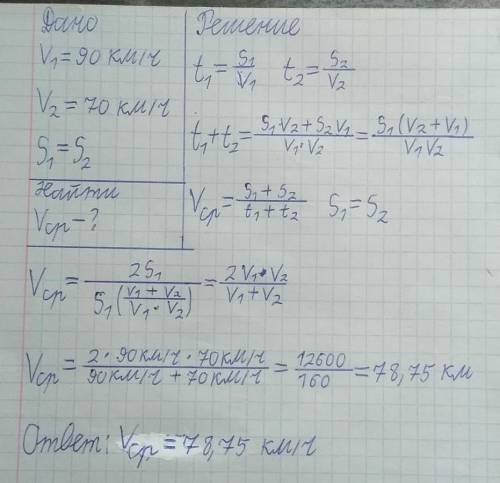 Дано
V₁=90 км/ч
V₂=70 км/ч
S₁=S₂
Найти
Vср-?
Решение
t₁=S₁/V₁ t₂=S₂/V₂
t₁+t₂=(S₁V₂+S₂V₁)/(V₁·V₂)=S₁(V₂+V₁)/(V₁V₂)
Vср=(S₁+S₂)/(t₁+t₂) S₁=S₂
Vср=2S₁/(S₁((V₁+V₂)/(V₁·V₂)))=2V₁·V₂/(V₁+V₂)
Vср=(2·90км/ч·70км/ч)/(90км/ч+70км/ч)=12600/160=78,75 км
Ответ: Vср=78,75 км/ч